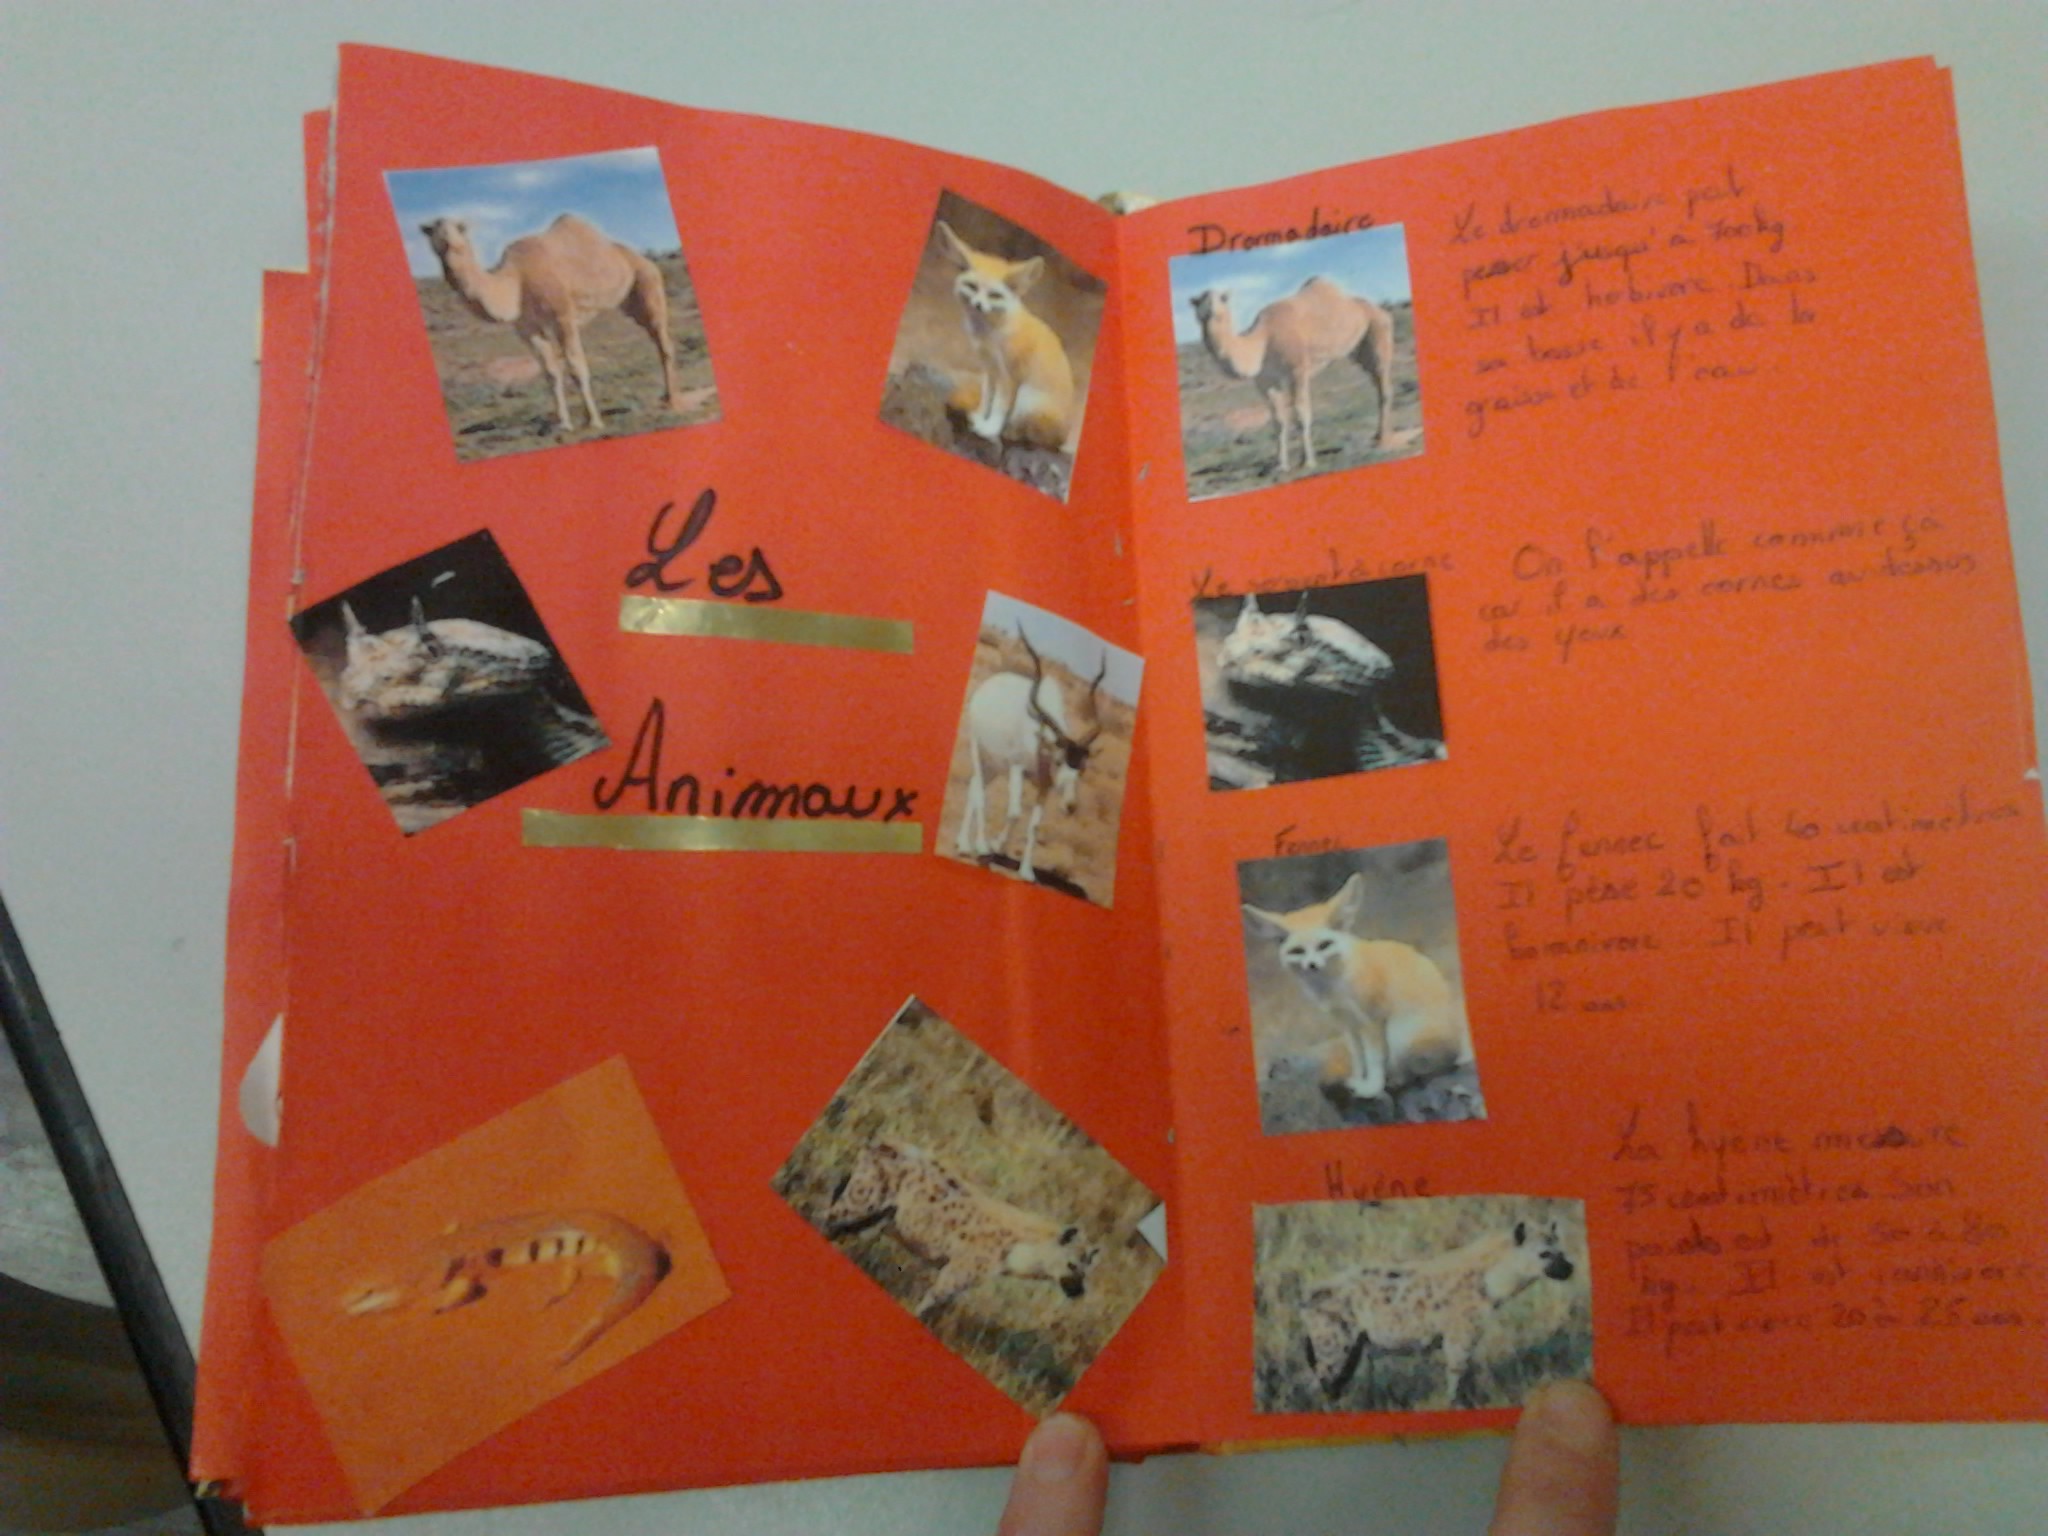 Les
Animaux
Dromadaire
Le dromadaire peut
peser jusqu'à 700 kg
Il est herbivore Dans
sa bosse il y a de la
graisse et de l'eau.
Le serpent à corne
On l'appelle comme çà
car il a des cornes au dessus
des yeux
Fennec
Le fennec fait 40 centimètres
Il pèse 20 kg. Il est
Il peut vivre
12 ans
Hyène
La hyène mesure
75 centimètres son
est de 50 à 80
kg. Il est carnivore.
Il peut vivre 20 à 25 ans.